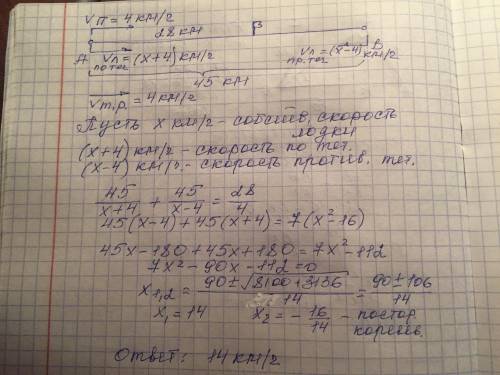 Vп = 4 км/г
28 км
A Vл = (x+4) км/г Vл = (x-4) км/г B
по теч пр. теч
45 км
Vт.р. = 4 км/г
Пусть x км/г - собств. скорость
лодки
(x+4) км/г - скорость по теч.
(x-4) км/г. - скорость против. теч.
45/(x+4) + 45/(x-4) = 28/4
45(x-4) + 45(x+4) = 7(x²-16)
45x - 180 + 45x + 180 = 7x² - 112
7x² - 90x - 112 = 0
x1,2 = (90 ± √(8100 + 3136))/14 = (90 ± 106)/14
x1 = 14 x2 = - 16/14 - постор
корень.
Ответ: 14 км/г